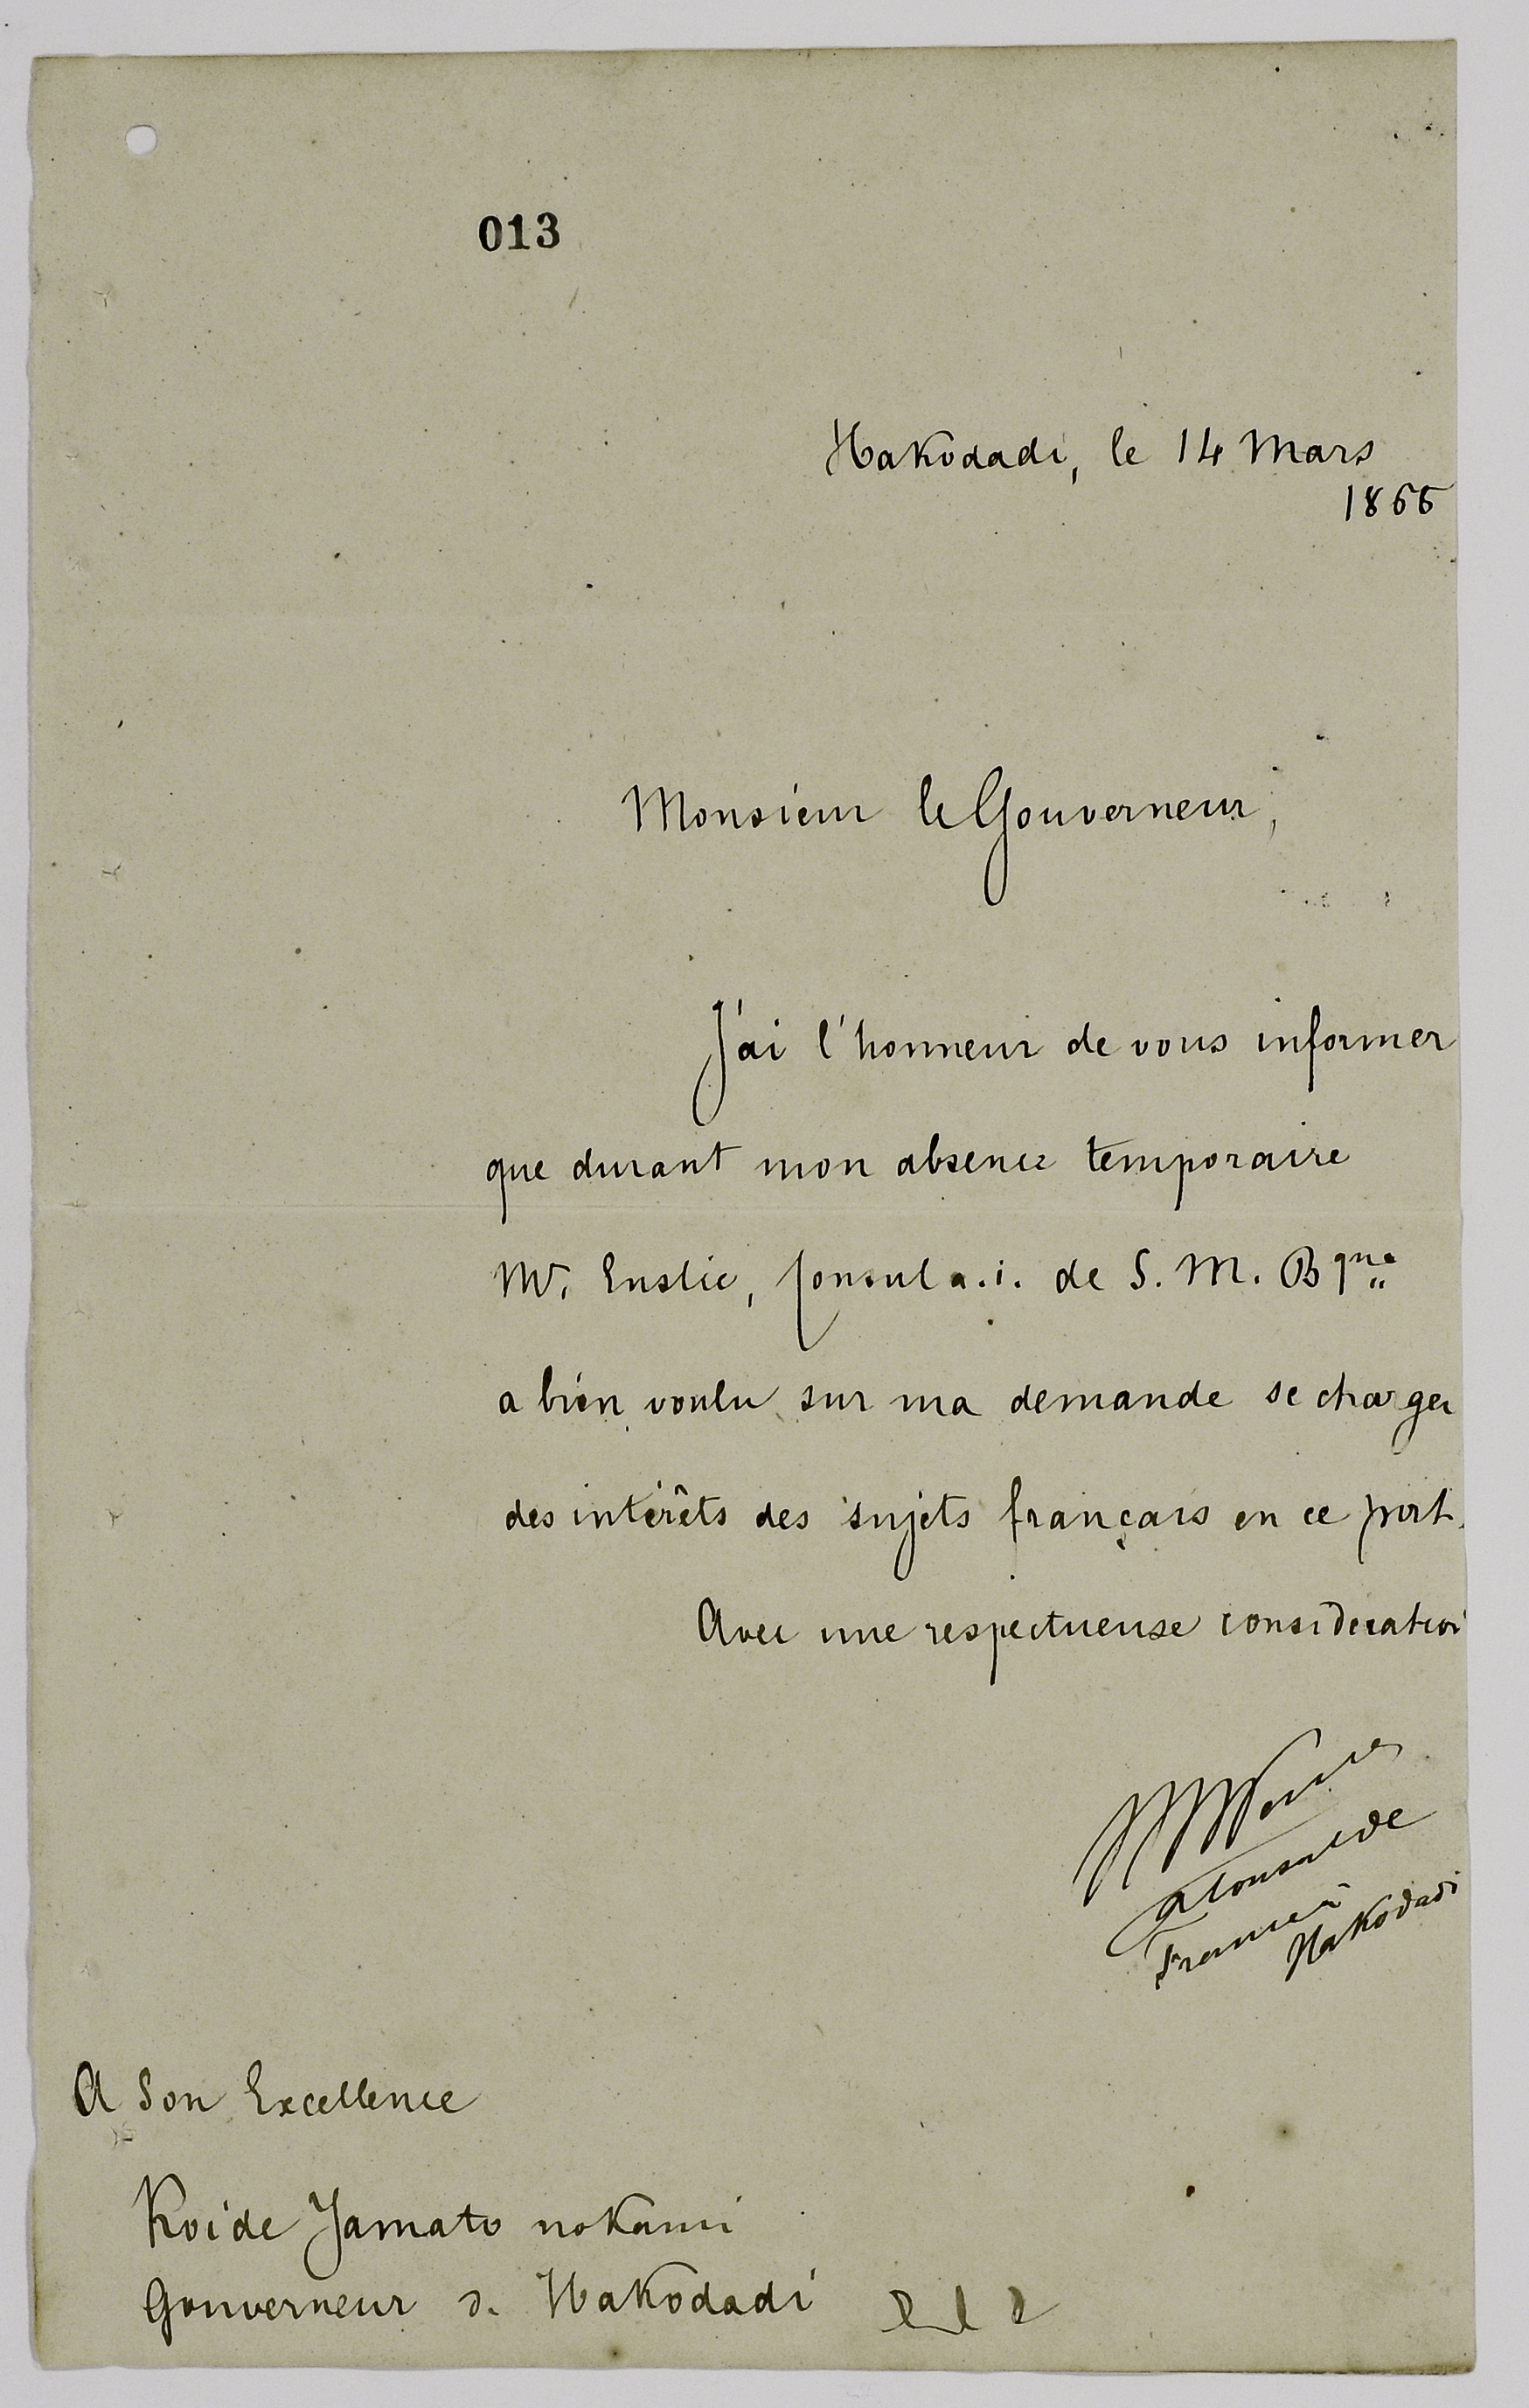 013
Hakodadi, le 14 Mars
1866
Monsieur le Gouverneur,
J'ai l'honneur de vous informer
que durant mon absence temporaire
Mr. Enslie, Consul a.i. de S. M. Bque
a bien voulu sur ma demande se charger
des intérêts des sujets français en ce port.
Avec une respectueuse consideration
Consul de
France à
Hakodadi
A Son Excellence
Koide Yamato nokami
Gouverneur d. Hakodadi